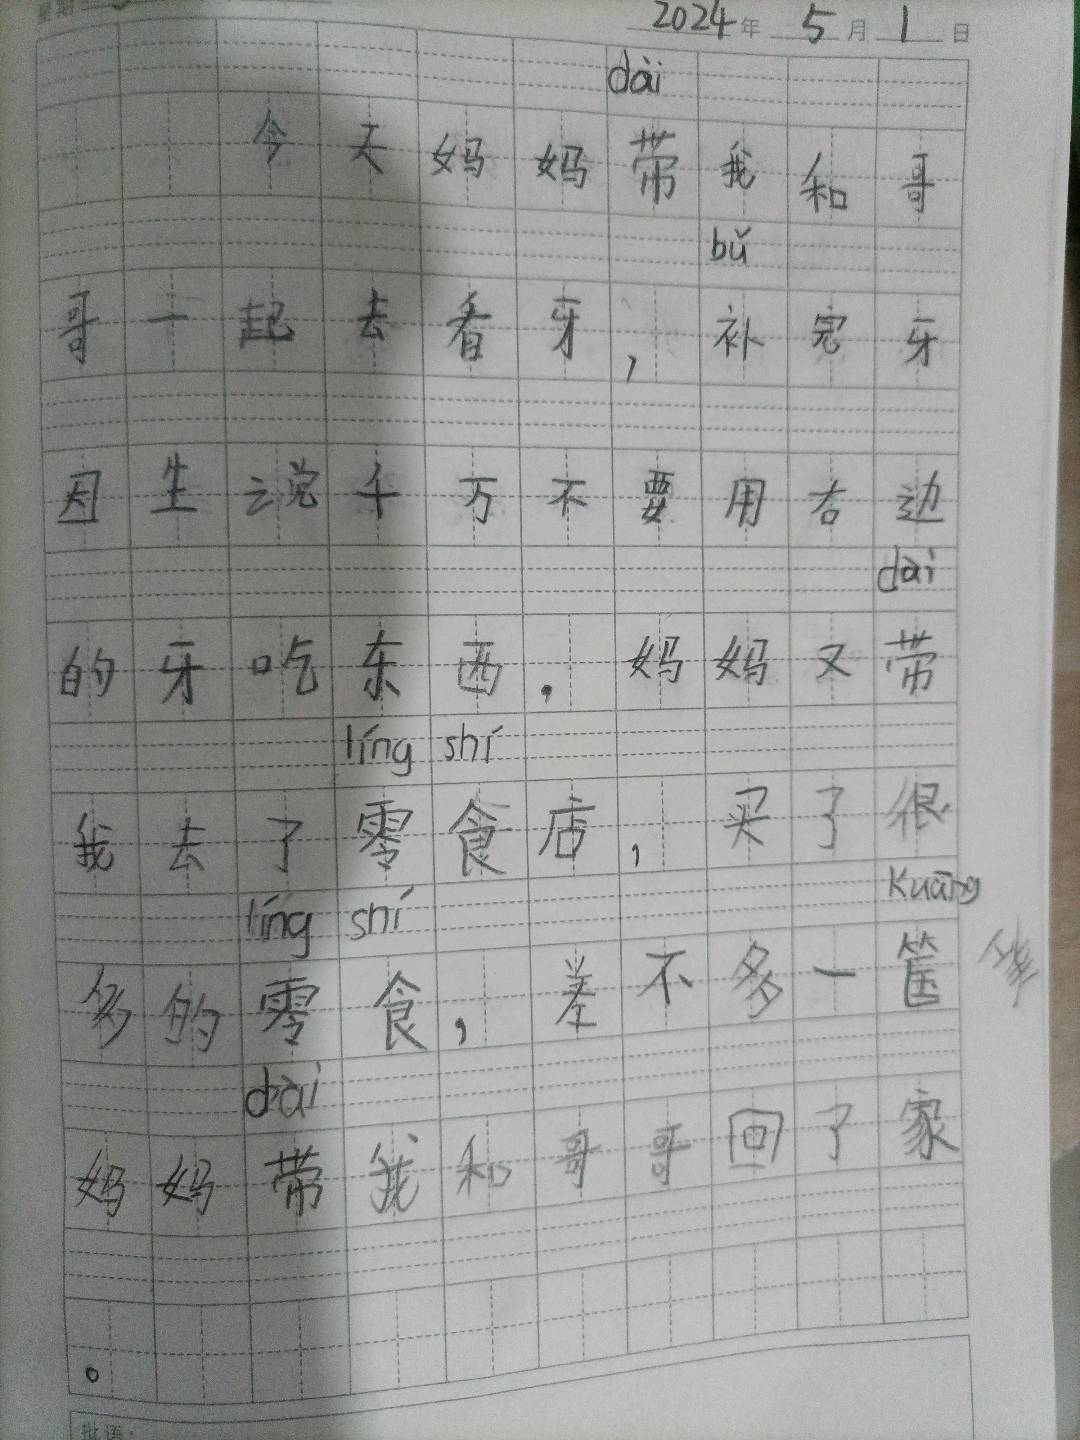 星期
2024年 5月1日
dài
今天妈妈带我和哥
bǔ
哥一起去看牙，补完牙
因生说千万不要用右边
dài
的牙吃东西．妈妈又带
líng shí
我去了零食店，买了很
kuāng
líng shí
多的零食，差不多一筐
dài
妈妈带我和哥哥回了家
。
批语：